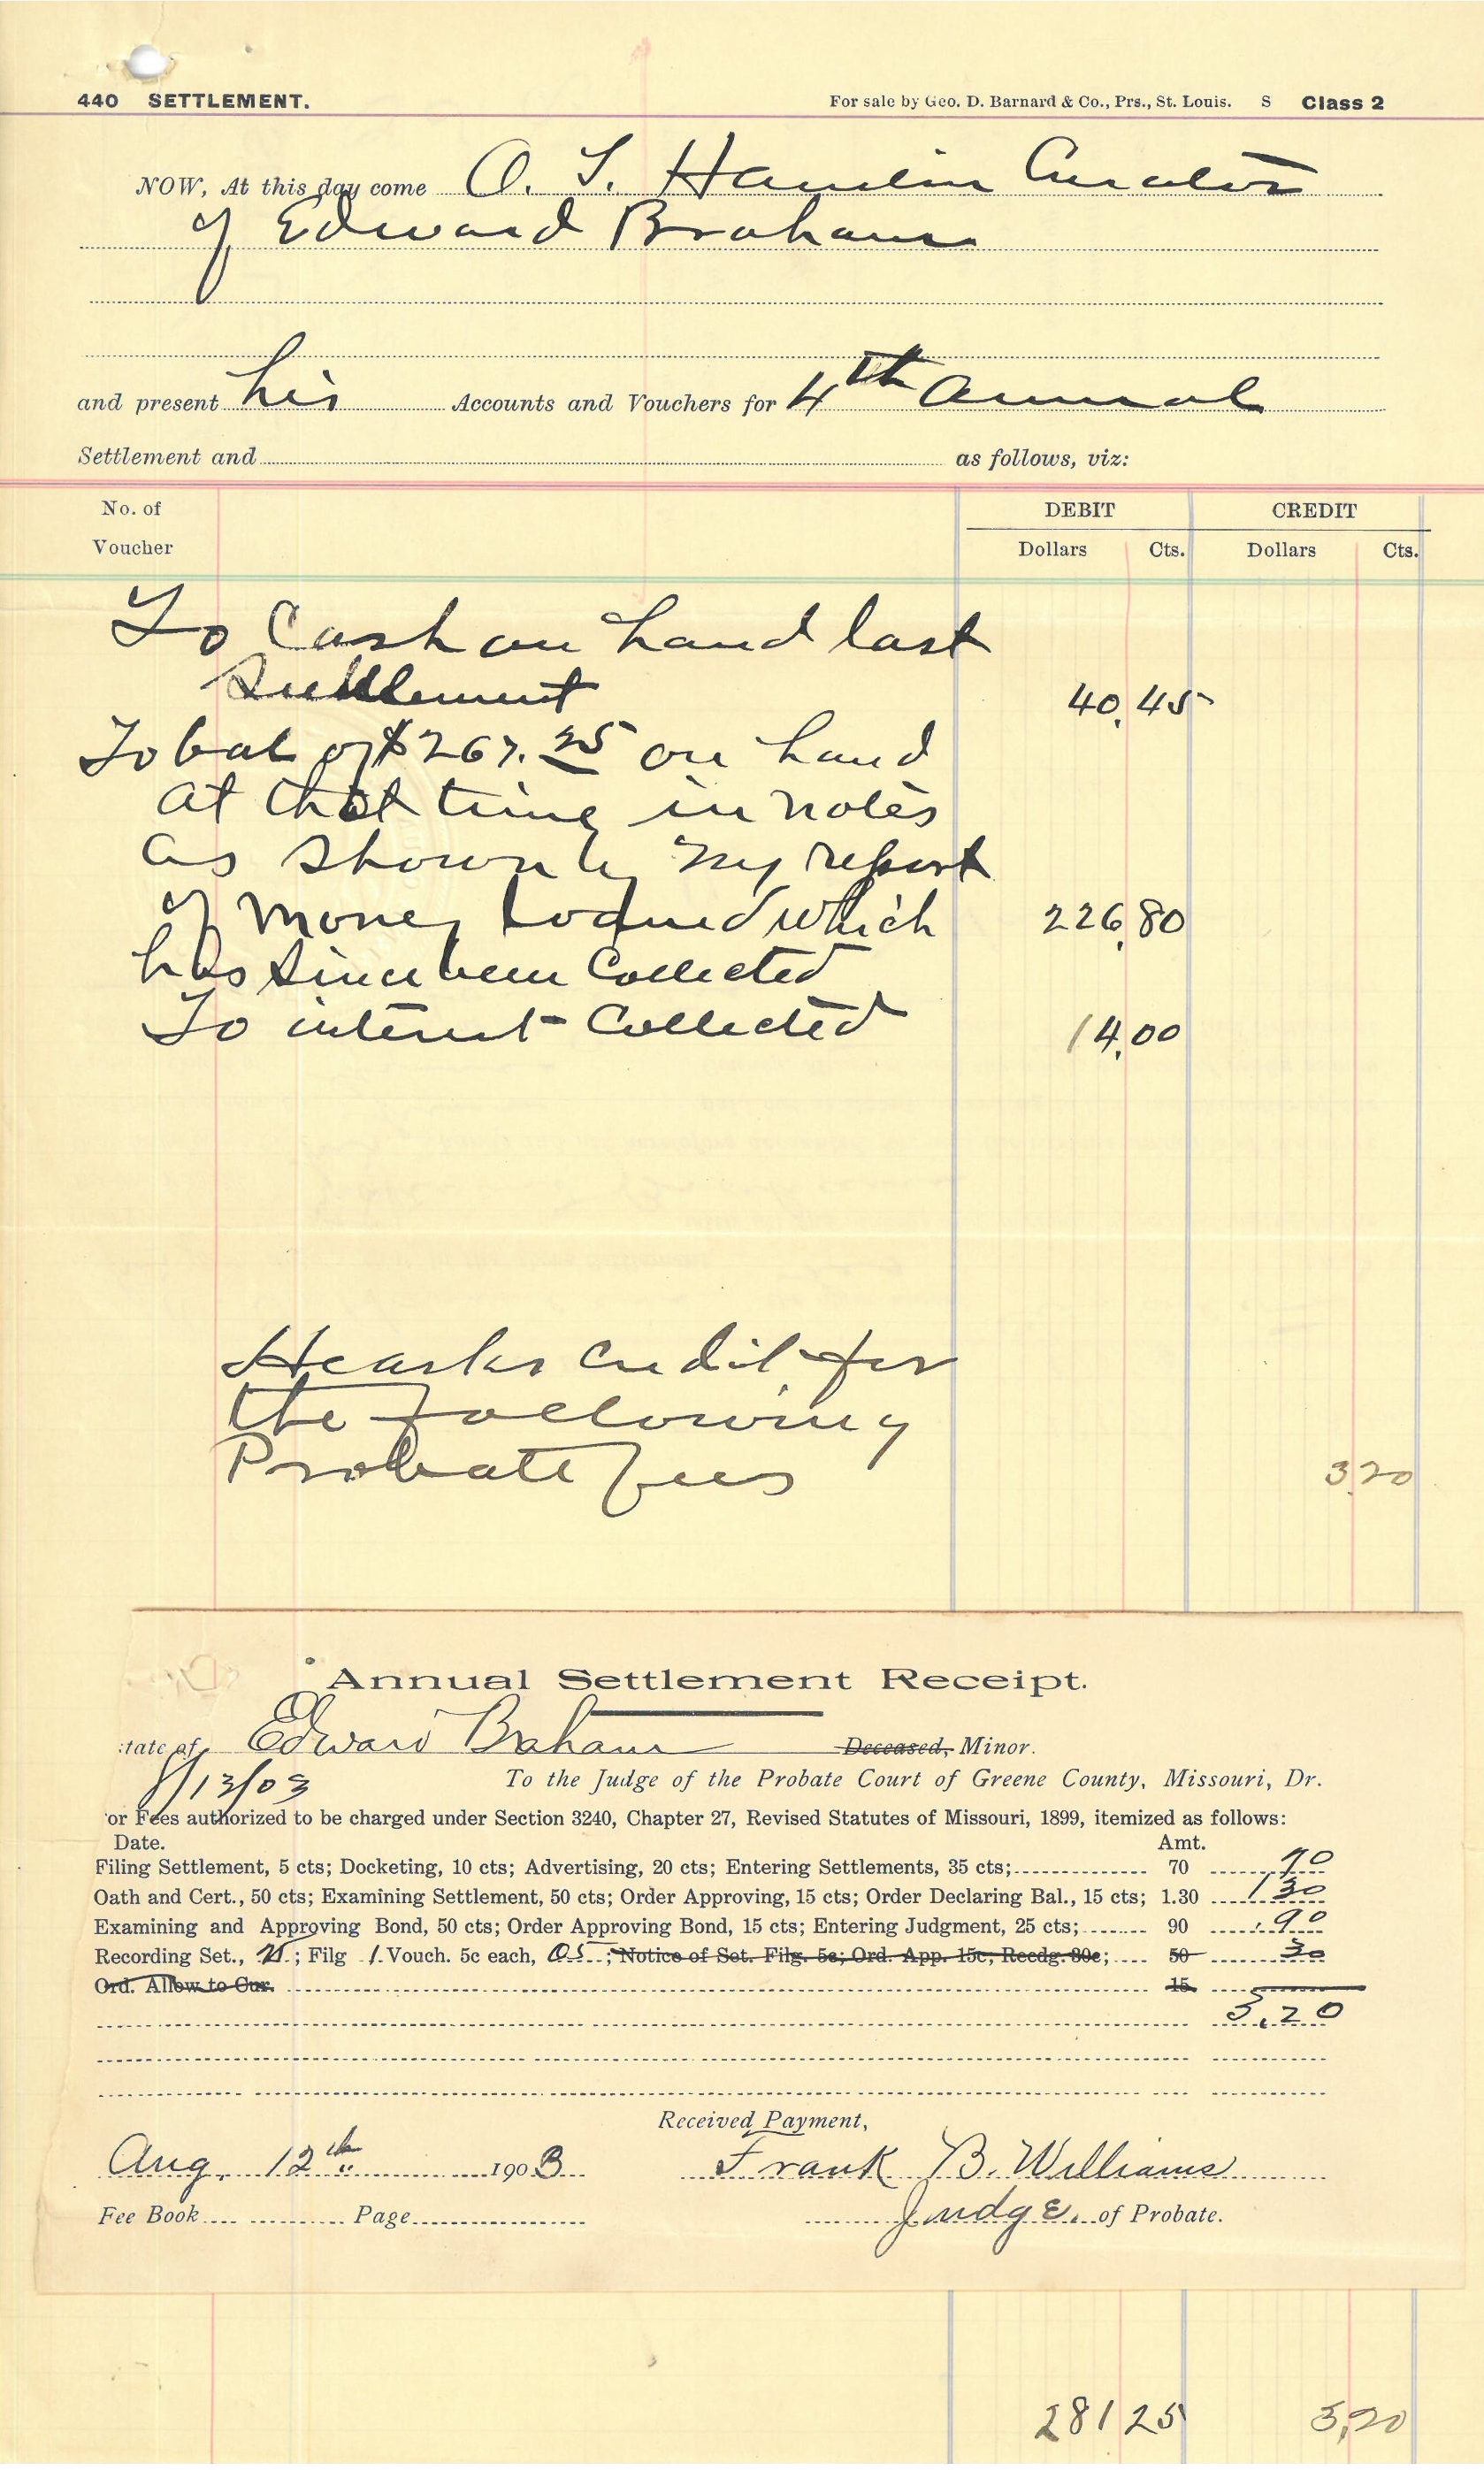 440 SETTLEMENT.
For sale by Geo. D. Barnard & Co., Prs., St. Louis. S Class 2
NOW, At this day come O. T. Hamlin Curator
of Edward Braham
and present his Accounts and Vouchers for 4th annual
Settlement and as follows, viz:
No. of Voucher
DEBIT CREDIT
Dollars Cts. Dollars Cts.
To Cash on hand last
Settlement 40,45
To bal of $267.25 on hand
at that time in notes
as shown by my report
of money loaned which 226,80
has since been Collected
To interest Collected 14,00
He asks credit for
the following
Probate fees 3,20
Annual Settlement Receipt.
:tate of Edward Braham Deceased, Minor.
8/12/03 To the Judge of the Probate Court of Greene County, Missouri, Dr.
or Fees authorized to be charged under Section 3240, Chapter 27, Revised Statutes of Missouri, 1899, itemized as follows:
Date. Amt.
Filing Settlement, 5 cts; Docketing, 10 cts; Advertising, 20 cts; Entering Settlements, 35 cts; 70 70
Oath and Cert., 50 cts; Examining Settlement, 50 cts; Order Approving, 15 cts; Order Declaring Bal., 15 cts; 1.30 1 30
Examining and Approving Bond, 50 cts; Order Approving Bond, 15 cts; Entering Judgment, 25 cts; 90 .90
Recording Set., 25; Filg 1 Vouch. 5c each, 05; Notice of Set. Filg. 5c; Ord. App. 15c, Recdg. 30c; 50 30
Ord. Allow to Cur. 15
3.20
Received Payment,
Aug. 12th 1903 Frank B. Williams
Fee Book Page Judge. of Probate.
281 25 3,20